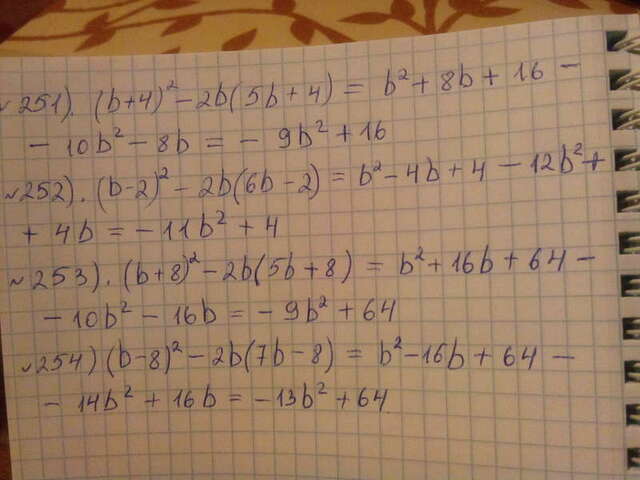 № 251). (b+4)² - 2b(5b+4) = b² + 8b + 16 -
- 10b² - 8b = - 9b² + 16
№ 252). (b-2)² - 2b(6b-2) = b² - 4b + 4 - 12b² +
+ 4b = - 11b² + 4
№ 253). (b+8)² - 2b(5b+8) = b² + 16b + 64 -
- 10b² - 16b = - 9b² + 64
№ 254) (b-8)² - 2b(7b-8) = b² - 16b + 64 -
- 14b² + 16b = - 13b² + 64